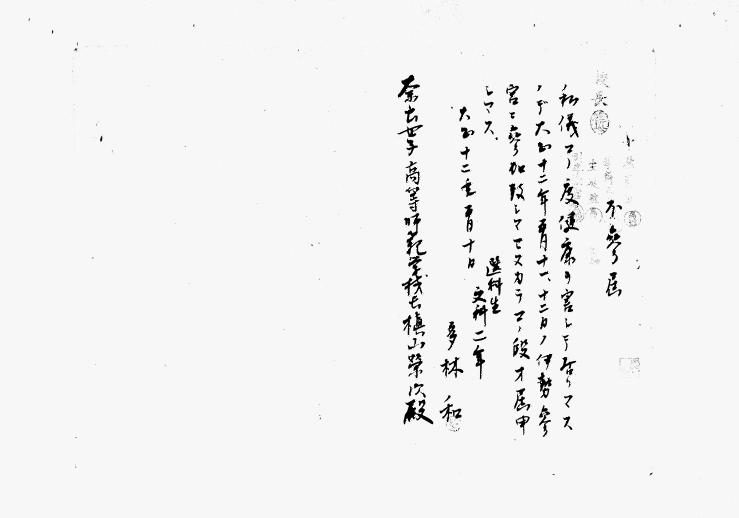 校長
不參届
私儀コノ度健康ヲ害シテ居リマス
ノデ大正十二年五月十一、十二日ノ伊勢參
宮ニ參加致シマセヌカラコノ段オ届申
シマス
大正十二年五月十日
選科生
文科二年
林 和
奈良女子高等師範学校長槇山榮次殿